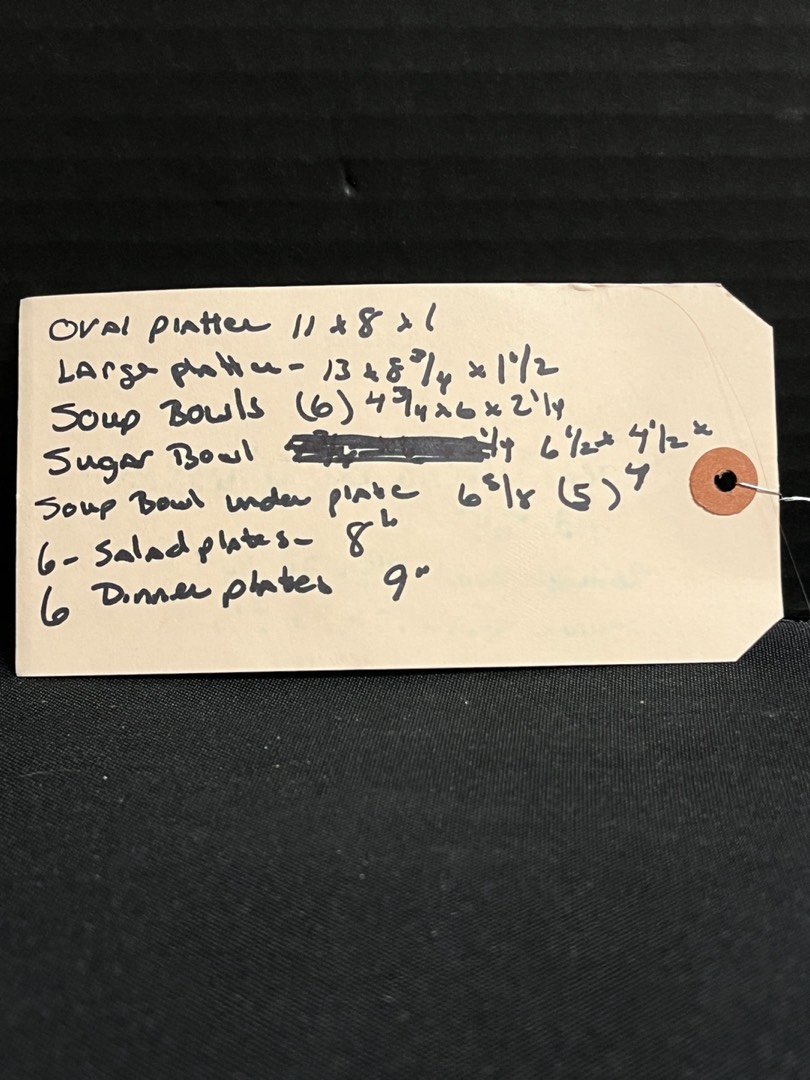 Oval platter 11 x 8 x 1
Large platter - 13 x 8 3/4 x 1 1/2
Soup Bowls (6) 4 3/4 x 6 x 2 1/4
Sugar Bowl 1/4 6 1/2 x 4 1/2 x
4
Soup Bowl under plate 6 5/8 (5)
6 - Salad plates - 8"
6 Dinner plates 9"